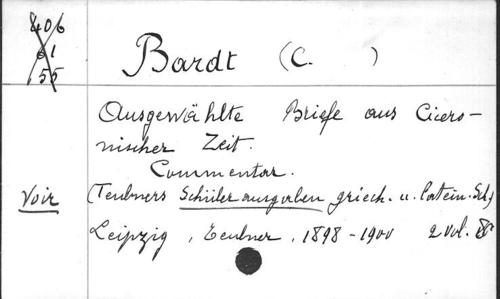 406
61
55
Bardt (C. )
Ausgewählte Briefe aus Cicero-
nischer Zeit.
Commentar.
Voir (Teubners Schülerausgaben griech. u. latein. Sch.)
Leipzig, Teubner, 1898-1900 2 vol. 8°